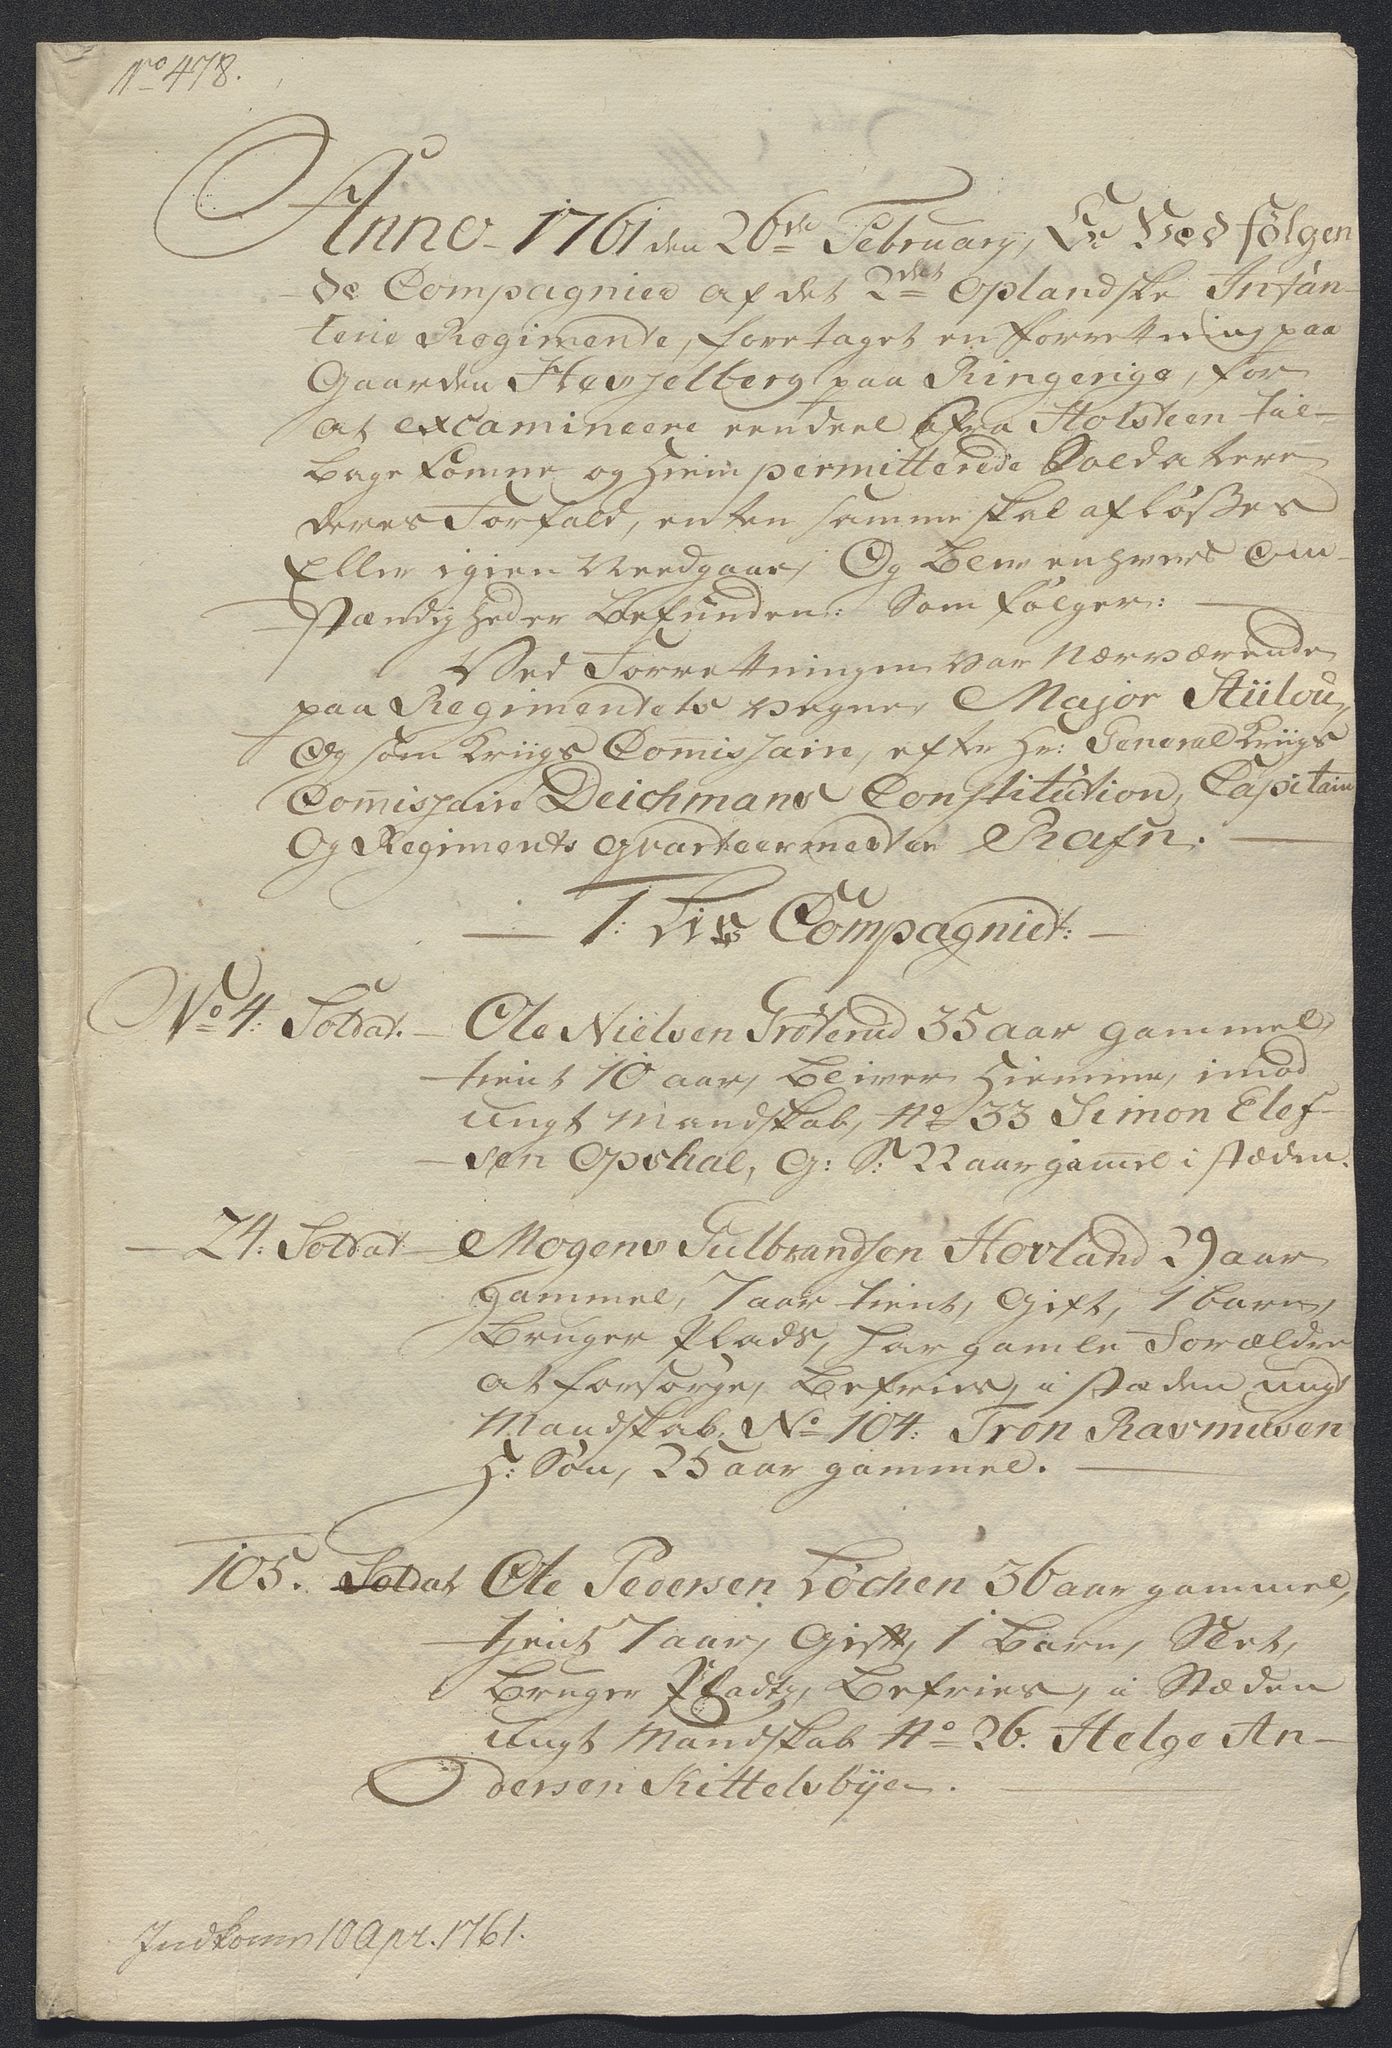 No 478.
Anno 1761 den 26de February, Er Ved følgen
de Compagnier af det 2det Oplandske Infan-
terie Regimente, foretaget en forrettning paa
Gaarden Hesselberg paa Ringerige, for
at excamineere eendeel fra Holsteen til-
bage komne og Hiem permitterede Soldatere
deres Forfald, enten samme skal afløsses
Eller igien Needgaae, Og blev enhvers Om-
stændigheder befunden: Som følger:
Ved Forrettningen var Nærværende
paa Regimentets vegne, Major Stülou,
Og som Kriigs Commissaire, efter Hr: General Kriigs
Commissaire Deichmans Constitution, Capitain
Og Regiments Qvarteermester Rafn.
1: Lifs Compagniet:
No 4: Soldat. Ole Nielsen Grøterud 35 aar gammel,
tient 10 aar, bliver Hiemme, imod
ungt Mandskab, No 33 Simon Elef-
sen Opshal, G: S: 22 aar gammel i stæden.
24: Soldat Mogens Gulbrandsen Hovland 29 aar
gammel, 7 aar tient, Gift, 1 barn,
Bruger Plads, har gamle Forældre
at forsørge, befries, i stæden ungt
Mandskab. No 104: Tron Rasmusen
H: Søn, 25 aar gammel.
105. Soldat Ole Pedersen Løchen 36 aar gammel,
tient 7 aar, Gift, 1 Barn, Slet,
Bruger Pladtz, Befries, i Stæden
ungt Mandskab No 26. Helge An-
dersen Kittelsbye.
Indkom 10 Apr. 1761.